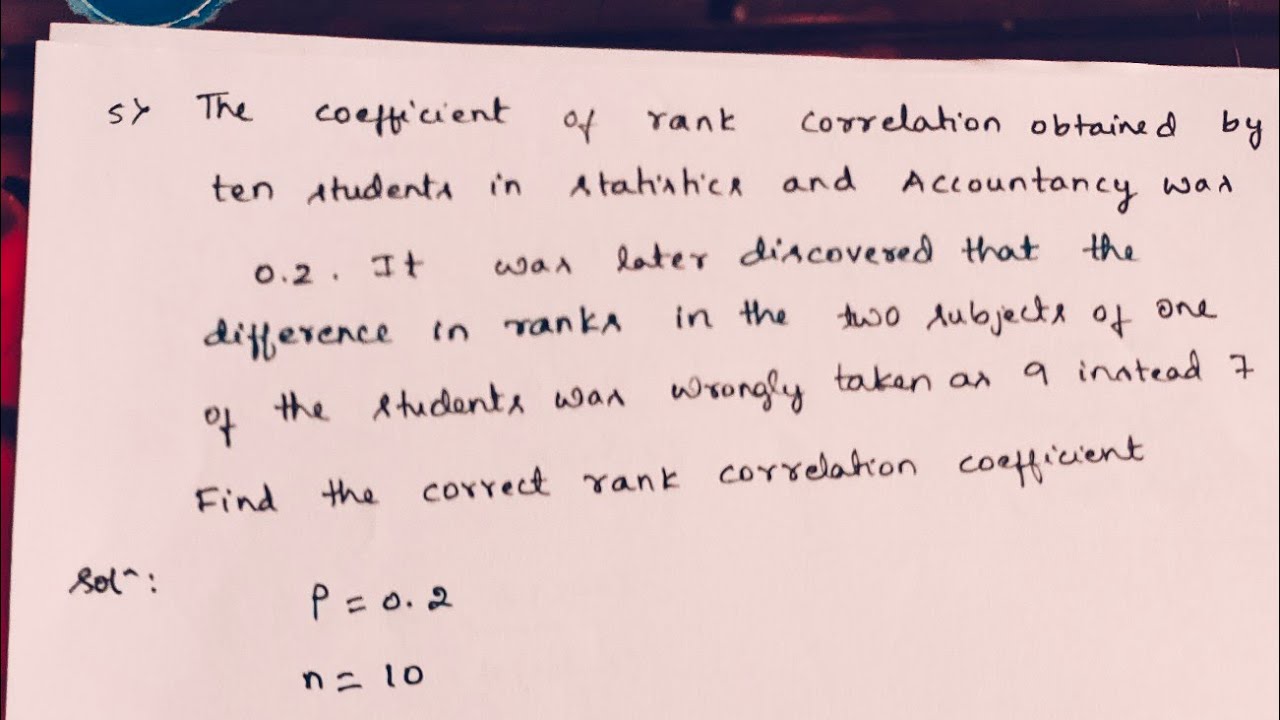 5) The coefficient of rank correlation obtained by
ten students in statistics and Accountancy was
0.2. It was later discovered that the
difference in ranks in the two subjects of one
of the students was wrongly taken as 9 instead 7
Find the correct rank correlation coefficient
Solⁿ:
P = 0.2
n = 10